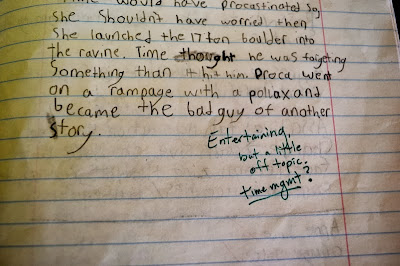 Time would have procastinated so
she Shouldn't have worried then
She launched the 17 ton boulder into
the ravine. Time thought he was forgeting
Something than it hit him. Proca went
on a rampage with a pollax and
became the bad guy of another
story.
Entertaining,
but a little
off topic.
time mgmt?